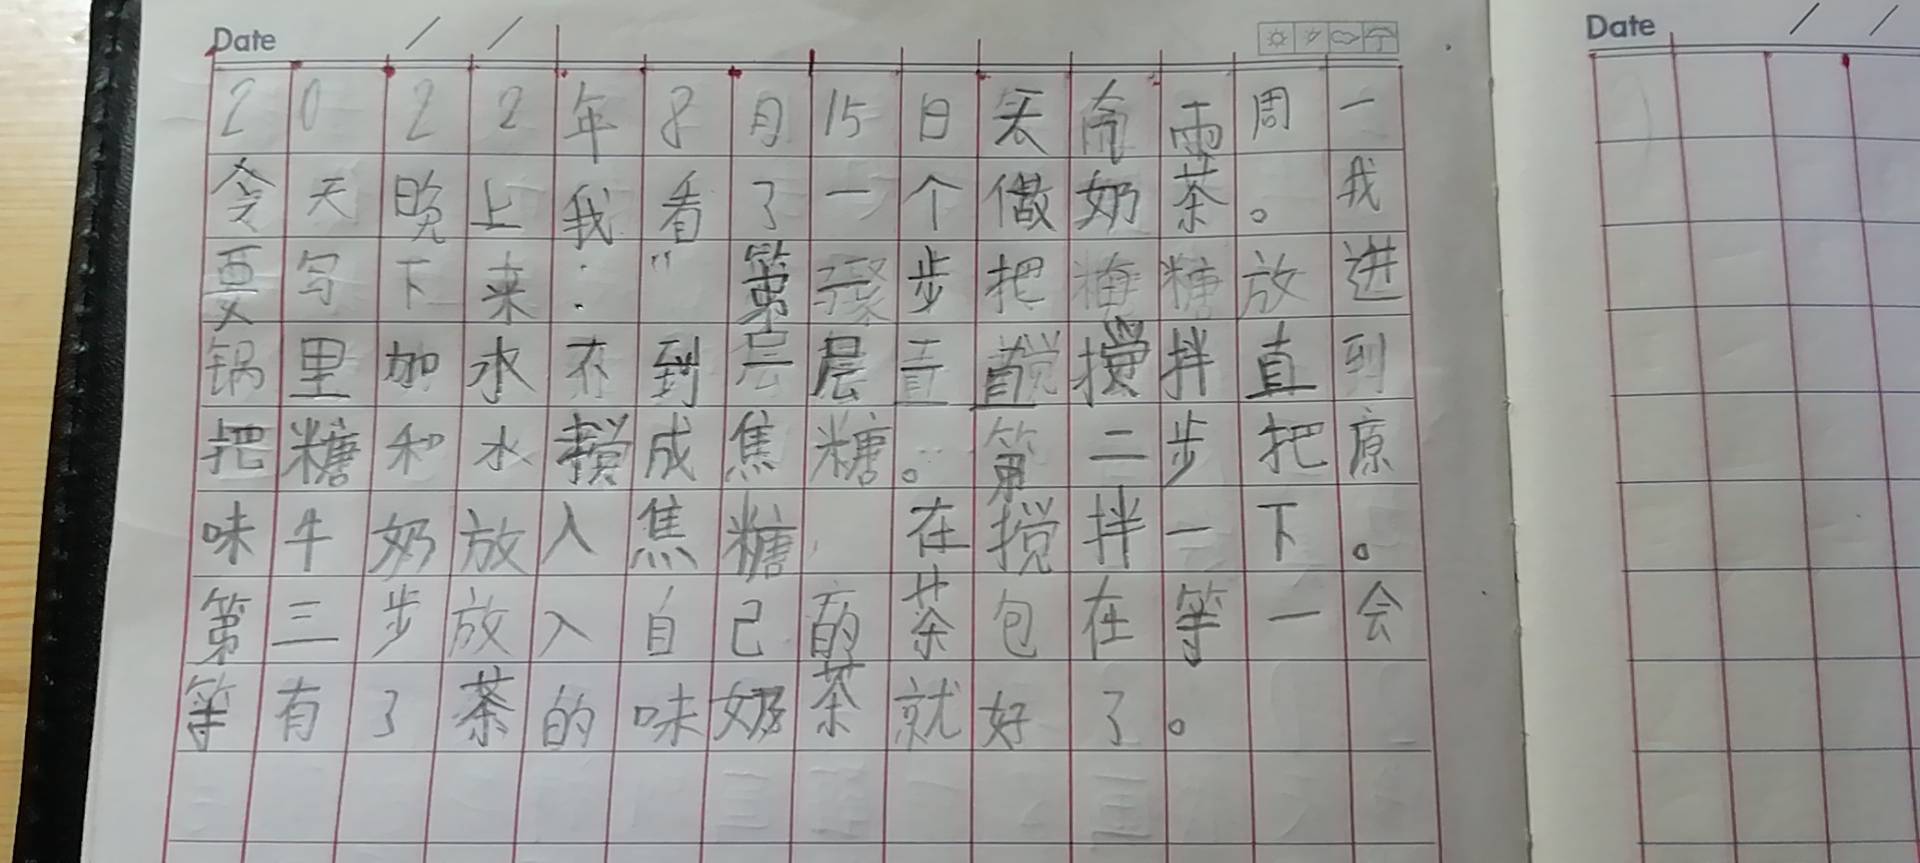 Date / / Date / /
2022年8月15日天斋雨周一
今天晚上我看了一个做奶茶。我
要写下来:"第骤步把糖放进
锅里加水不到层层直搅拌直到
把糖和水搅成焦糖。第二步把原
味牛奶放入焦糖 在搅拌一下。
第三步放入自己的茶包在等一会
等有了茶的味奶茶就好了。